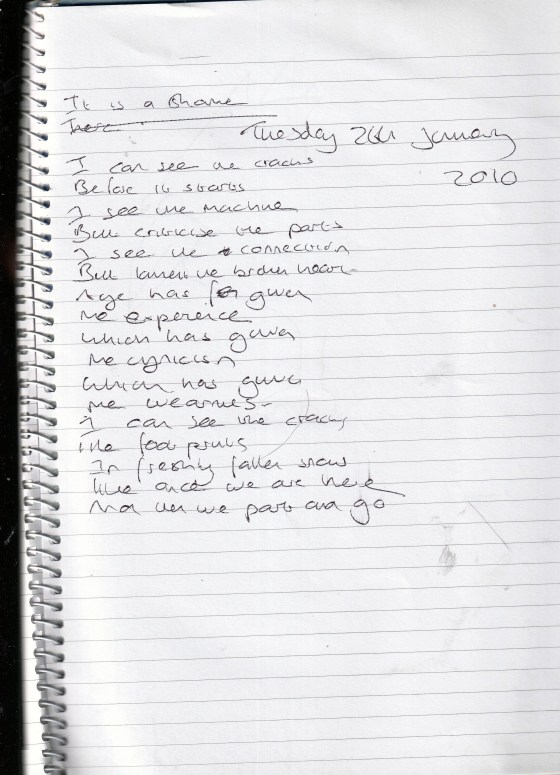 It is a shame
There
Tuesday 26th January
2010
I can see the cracks
Before it starts
I see the machine
But criticise the parts
I see the connection
But lament the broken heart
Age has given
Me experience
Which has given
Me cynicism
Which has given
Me weariness
I can see the cracks
like foot prints
In freshly fallen snow
like once we are here
And then we part and go